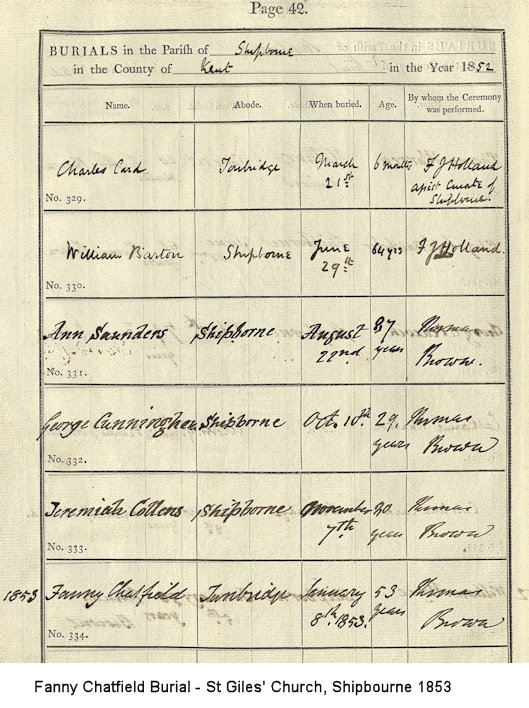 Page 42.
BURIALS in the Parish of Shipborne
in the County of Kent in the Year 1852
Name. Abode. When buried. Age. By whom the Ceremony was performed.
Charles Card Tonbridge March 21st 6 months F J Holland
assist Curate of Shipborne.
No. 329.
William Barton Shipborne June 29th 64 yrs F J Holland.
No. 330.
Ann Saunders Shipborne August 22nd 87 years Thomas Brown.
No. 331.
George Cunningham Shipborne Oct. 10th. 29. years Thomas Brown
No. 332.
Jeremiah Collens Shipborne November 7th. years Thomas Brown
No. 333.
1853 Fanny Chatfield Tunbridge January 8th. 1853. 53 years Thomas Brown
No. 334.
Fanny Chatfield Burial - St Giles' Church, Shipbourne 1853